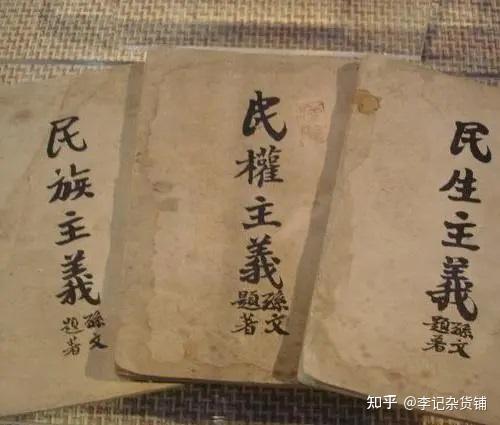 民族主義
孫文
題著
民權主義
孫文
題著
民生主義
孫文
題著
知乎 @李记杂货铺